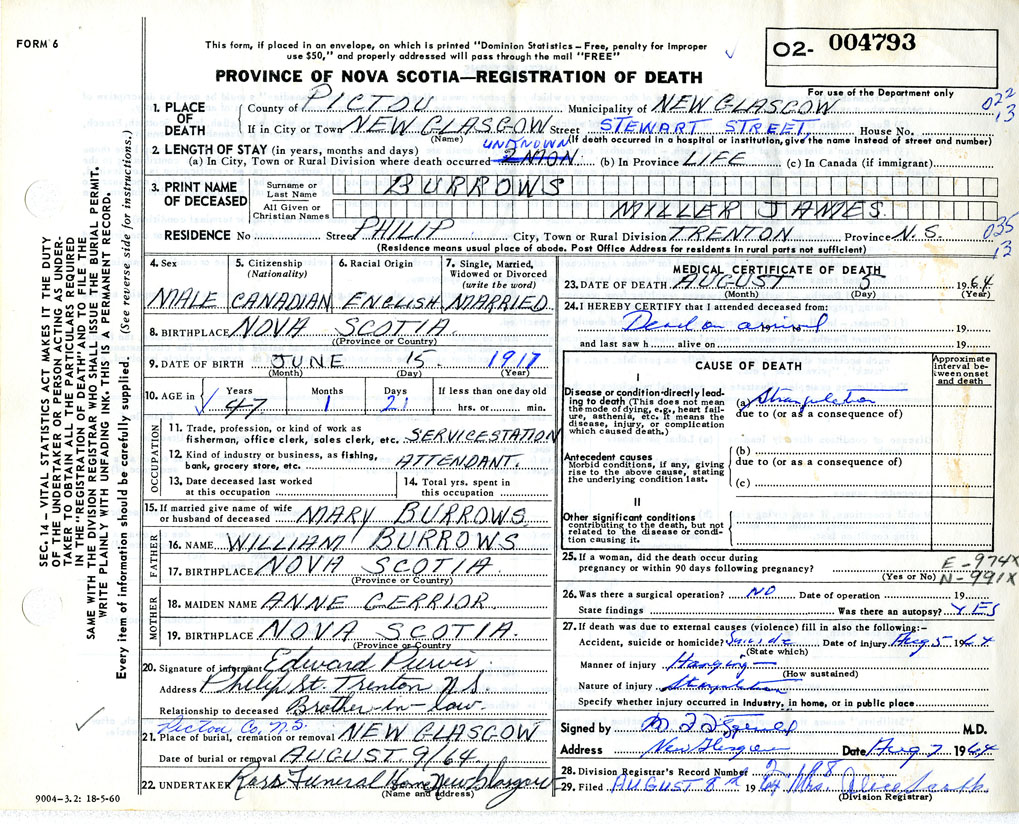 FORM 6
This form, if placed in an envelope, on which is printed "Dominion Statistics – Free, penalty for improper
use $50," and properly addressed will pass through the mail "FREE"
O2- 004793
For use of the Department only
PROVINCE OF NOVA SCOTIA—REGISTRATION OF DEATH
022
13
1. PLACE OF DEATH
County of PICTOU Municipality of NEW GLASGOW
If in City or Town NEW GLASGOW Street STEWART STREET House No.
(Name) (If death occurred in a hospital or institution, give the name instead of street and number)
2. LENGTH OF STAY (in years, months and days)
UNKNOWN
(a) In City, Town or Rural Division where death occurred (b) In Province LIFE (c) In Canada (if immigrant)
3. PRINT NAME OF DECEASED
Surname or Last Name BURROWS
All Given or Christian Names MILLER JAMES
035
13
RESIDENCE No Street PHILIP City, Town or Rural Division TRENTON Province N.S.
(Residence means usual place of abode. Post Office Address for residents in rural parts not sufficient)
4. Sex
MALE
5. Citizenship (Nationality)
CANADIAN
6. Racial Origin
ENGLISH
7. Single, Married, Widowed or Divorced (write the word)
MARRIED
8. BIRTHPLACE NOVA SCOTIA
(Province or Country)
9. DATE OF BIRTH JUNE 15 1917
(Month) (Day) (Year)
10. AGE in
Years Months Days If less than one day old
47 1 21 hrs. or min.
OCCUPATION
11. Trade, profession, or kind of work as
fisherman, office clerk, sales clerk, etc. SERVICESTATION
12. Kind of industry or business, as fishing,
bank, grocery store, etc. ATTENDANT.
13. Date deceased last worked
at this occupation
14. Total yrs. spent in
this occupation
15. If married give name of wife
or husband of deceased MARY BURROWS
FATHER
16. NAME WILLIAM BURROWS
17. BIRTHPLACE NOVA SCOTIA
(Province or Country)
MOTHER
18. MAIDEN NAME ANNE GERRIOR
19. BIRTHPLACE NOVA SCOTIA.
(Province or Country)
20. Signature of informant Edward Purvis
Address Philip St. Trenton N.S.
Relationship to deceased Brother-in-law.
Pictou Co. N.S.
21. Place of burial, cremation or removal NEW GLASGOW
Date of burial or removal AUGUST. 9/64
22. UNDERTAKER Funeral Home New Glasgow
(Name and address)
9004–3.2: 18-5-60
MEDICAL CERTIFICATE OF DEATH
23. DATE OF DEATH AUGUST 5 1964
(Month) (Day) (Year)
24. I HEREBY CERTIFY that I attended deceased from:
Dead on arrival 19
and last saw h alive on 19
CAUSE OF DEATH
Approximate interval between onset and death
I
Disease or condition directly leading to death (This does not mean the mode of dying, e.g., heart failure, asthenia, etc. It means the disease, injury, or complication which caused death.)
(a) Strangulation
due to (or as a consequence of)
Antecedent causes
Morbid conditions, if any, giving rise to the above cause, stating the underlying condition last.
(b)
due to (or as a consequence of)
(c)
II
Other significant conditions
contributing to the death, but not related to the disease or condition causing it.
25. If a woman, did the death occur during
pregnancy or within 90 days following pregnancy?
(Yes or No)
E-974X
N-991X
26. Was there a surgical operation? NO Date of operation 19
State findings Was there an autopsy? YES
27. If death was due to external causes (violence) fill in also the following:–
Accident, suicide or homicide? Suicide Date of injury Aug 5 1964
(State which)
Manner of injury Hanging
(How sustained)
Nature of injury Strangulation
Specify whether injury occurred in industry, in home, or in public place
Signed by M.D.
Address New Glasgow Date Aug 7 1964
28. Division Registrar's Record Number
29. Filed AUGUST 8 1964 Mrs. Alice
(Division Registrar)
SEC. 14 – VITAL STATISTICS ACT MAKES IT THE DUTY
OF THE UNDERTAKER OR PERSON ACTING AS UNDER-
TAKER TO OBTAIN ALL THE PARTICULARS REQUIRED
IN THE "REGISTRATION OF DEATH" AND TO FILE THE
SAME WITH THE DIVISION REGISTRAR WHO SHALL ISSUE THE BURIAL PERMIT.
WRITE PLAINLY WITH UNFADING INK. THIS IS A PERMANENT RECORD.
Every item of information should be carefully supplied. (See reverse side for instructions.)